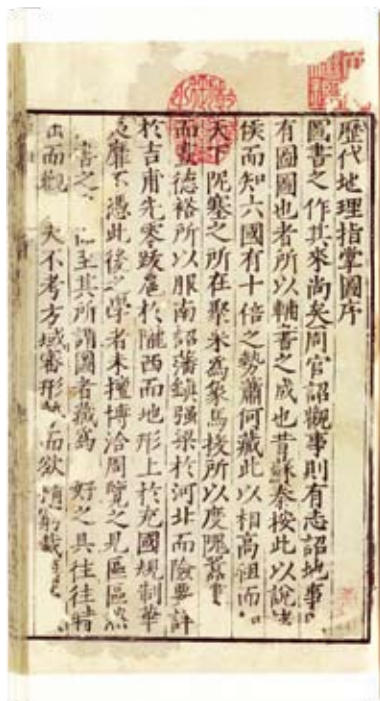 歷代地理指掌圖序
圖書之作其來尚矣周官詔觀事則有志詔地事
有圖圖也者所以輔書之成也昔蘇秦按此以說
侯而知六國有十倍之勢蕭何藏此以相高祖而
天下阨塞之所在聚米為象馬援所以度隗囂
而畫德裕所以服南詔藩鎮强梁於河北而險要詳
於吉甫先零跋扈於隴西而地形上於充國規制華
靡不憑此後之學者未擅博洽周覽之見區區
書之 至其所謂圖者藏為 好之具往往特
而觀 大不考方域審形 而欲